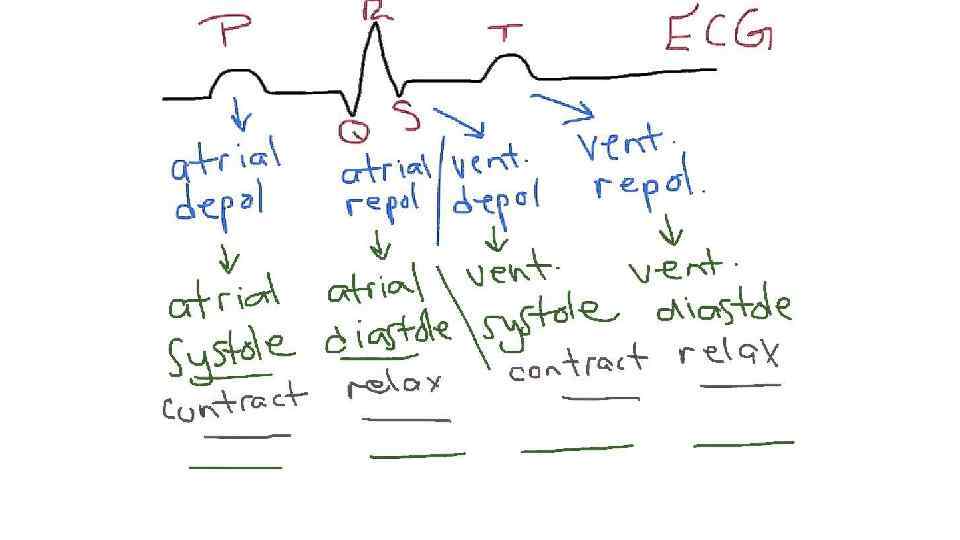 P R T ECG
Q S
atrial
depol
atrial
repol
vent.
depol
vent.
repol.
atrial
systole
contract
atrial
diastole
relax
vent.
systole
contract
vent.
diastole
relax